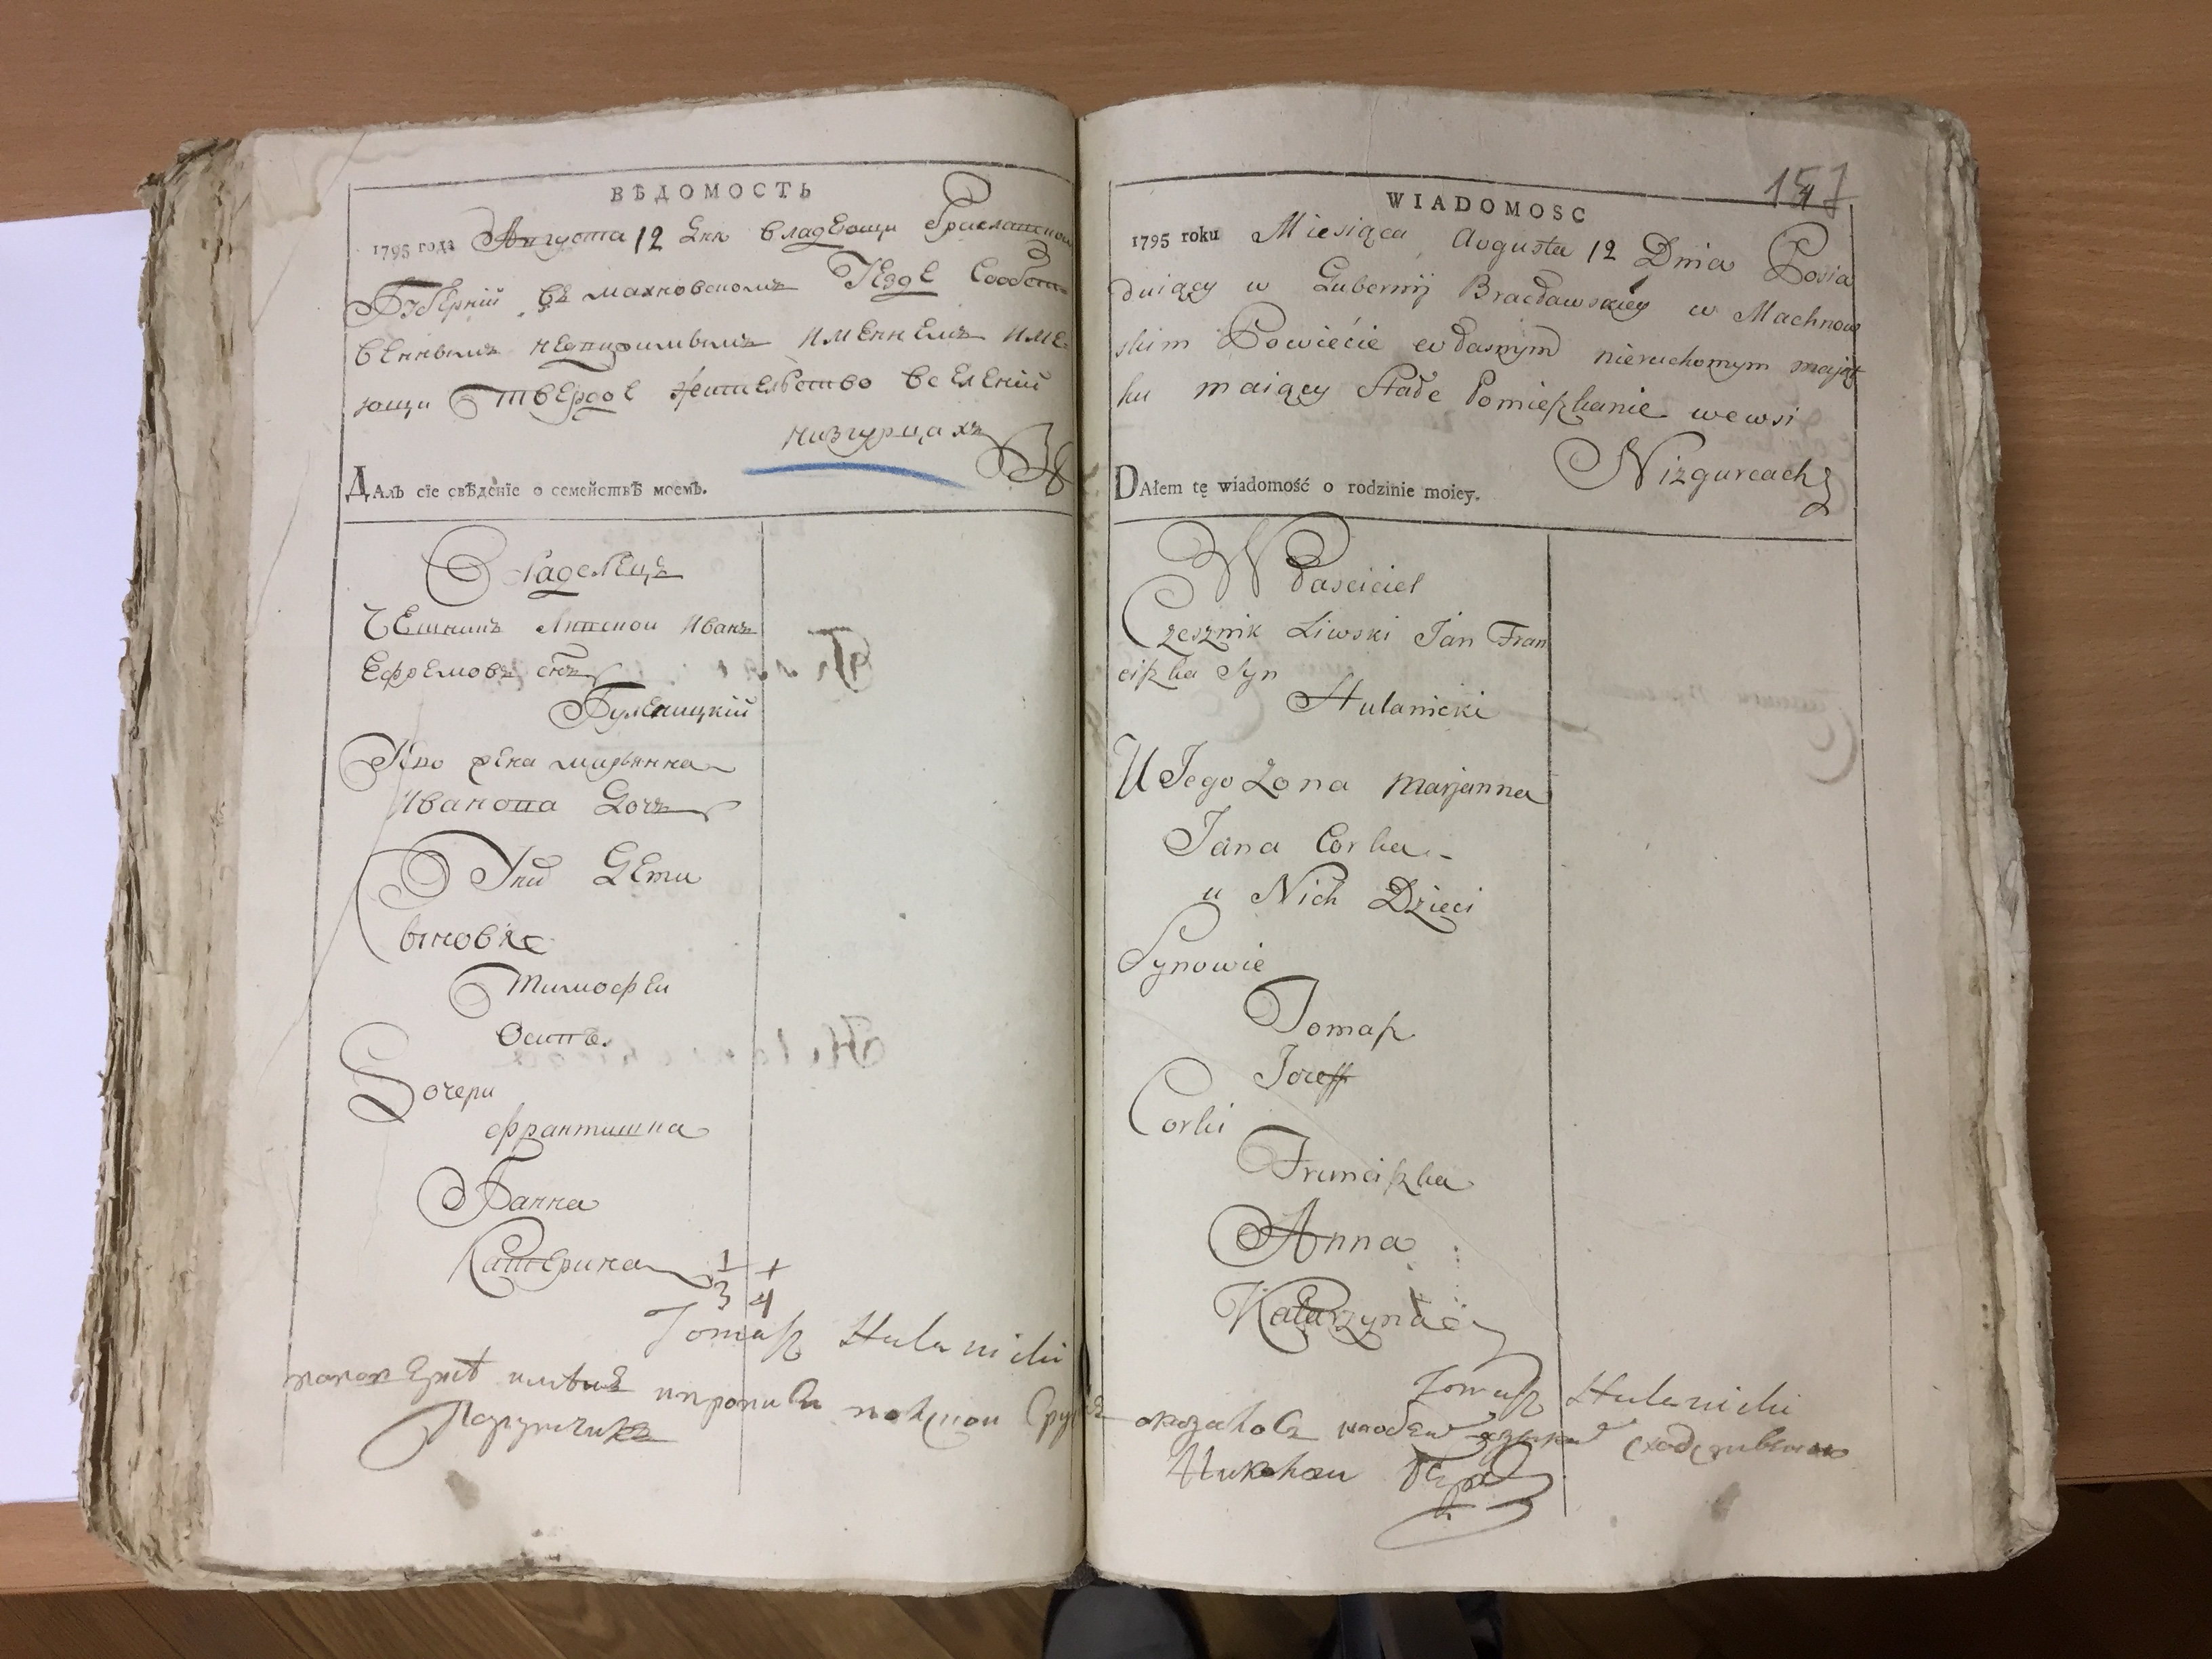 ВѢДОМОСТЬ
1795 года Августа 12 дня владеющи Браславской
Губерній въ махновскомъ уездѣ Собст
венным недвижимымъ имениемъ име
ющи твердое жительство вселеніи
низгурцахъ
Далъ сіе свѣденіе о семействѣ моемъ.
Владелецъ
Чешникъ Ливской Иванъ
Ефремовъ снъ
Гуленицкій
Его жена марьянна
Ивановна дочь
У них дети
Сыновья
Тимофеи
Осипъ.
Дочери
франтишка
Ганна
Катерина 1 +
3 4
Tomasz Hulanicki
Порутчикъ
157
WIADOMOSC
1795 roku Miesiąca Augusta 12 Dnia Posia
duiący w Gubernij Bracławskiey w Machnow
skim Powiećie własnym nieruchomym mająt
ku maiący Stałe Pomieszkanie we wsi
Nizgurcach
DAłem tę wiadomość o rodzinie moiey.
Właściciel
Czesznik Liwski Jan Fran
ciszka Syn
Hulanicki
U Jego Zona Marjanna
Jana Corka
u Nich Dzieci
Synowie
Tomasz
Jozeff
Corki
Franciszka
Anna
Katarzyna
Tomasz Hulanicki
оказалось сходственно
Николаи